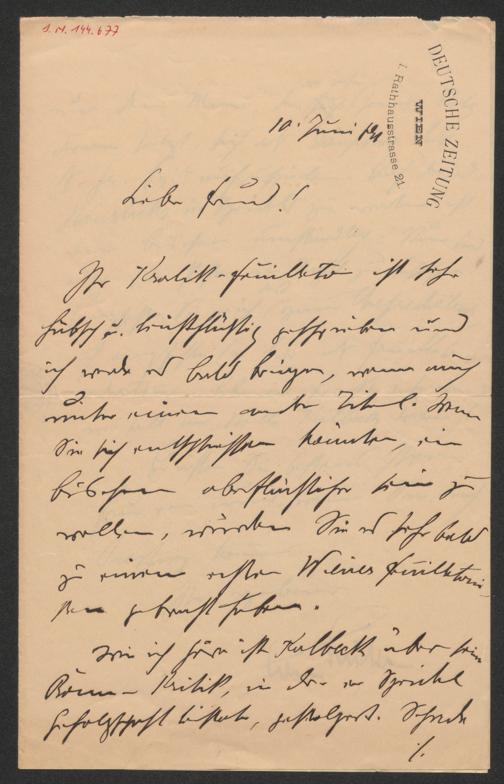 J. N. 144.677
DEUTSCHE ZEITUNG
WIEN
I. Rathhausstrasse 21.
10. Juni
Lieber Freund!
Ihr Kralik-Feuilleton ist sehr
hübsch u. leichtflüssig geschrieben und
ich werde es bald bringen, wenn auch
unter einem andern Titel. Wenn
Sie sich entschliessen könnten, ein
bischen oberflächlicher sein zu
wollen, würden Sie es sehr bald
zu einem echten Wiener Feuilletoni-
sten gebracht haben.
Wie ich höre ist Kalbeck über sein
Kritik, in der er Speidel
Gefolgschaft leistete, gestolpert. Schade
./.